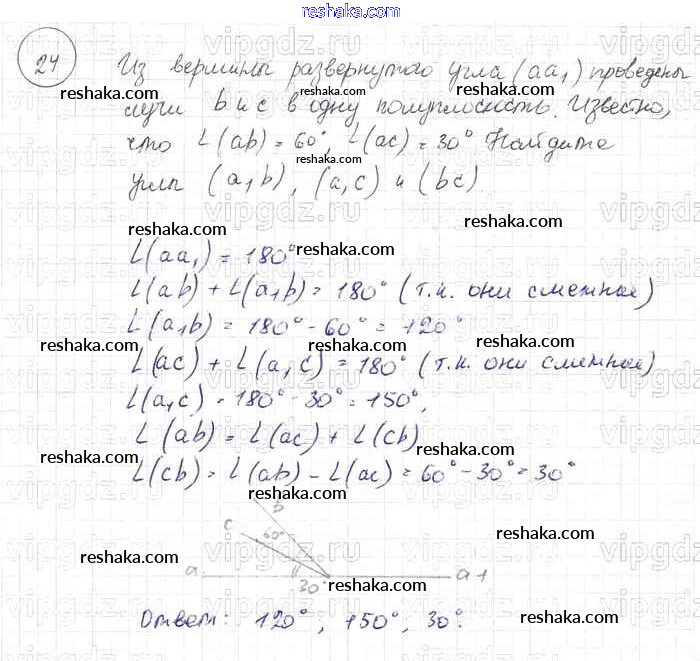 reshaka.com
24
Из вершины развернутого угла (aa₁) проведены
лучи b и c в одну полуплоскость. Известно,
что ∠(ab) = 60°, ∠(ac) = 30° Найдите
углы (a₁b), (a₁c) и (bc)
∠(aa₁) = 180°
∠(ab) + ∠(a₁b) = 180° (т.к. они смежные)
∠(a₁b) = 180° - 60° = 120°
∠(ac) + ∠(a₁c) = 180° (т.к. они смежные)
∠(a₁c) = 180° - 30° = 150°,
∠(ab) = ∠(ac) + ∠(cb)
∠(cb) = ∠(ab) - ∠(ac) = 60° - 30° = 30°
b
c 60°
a 30° a1
Ответ: 120°, 150°, 30°.